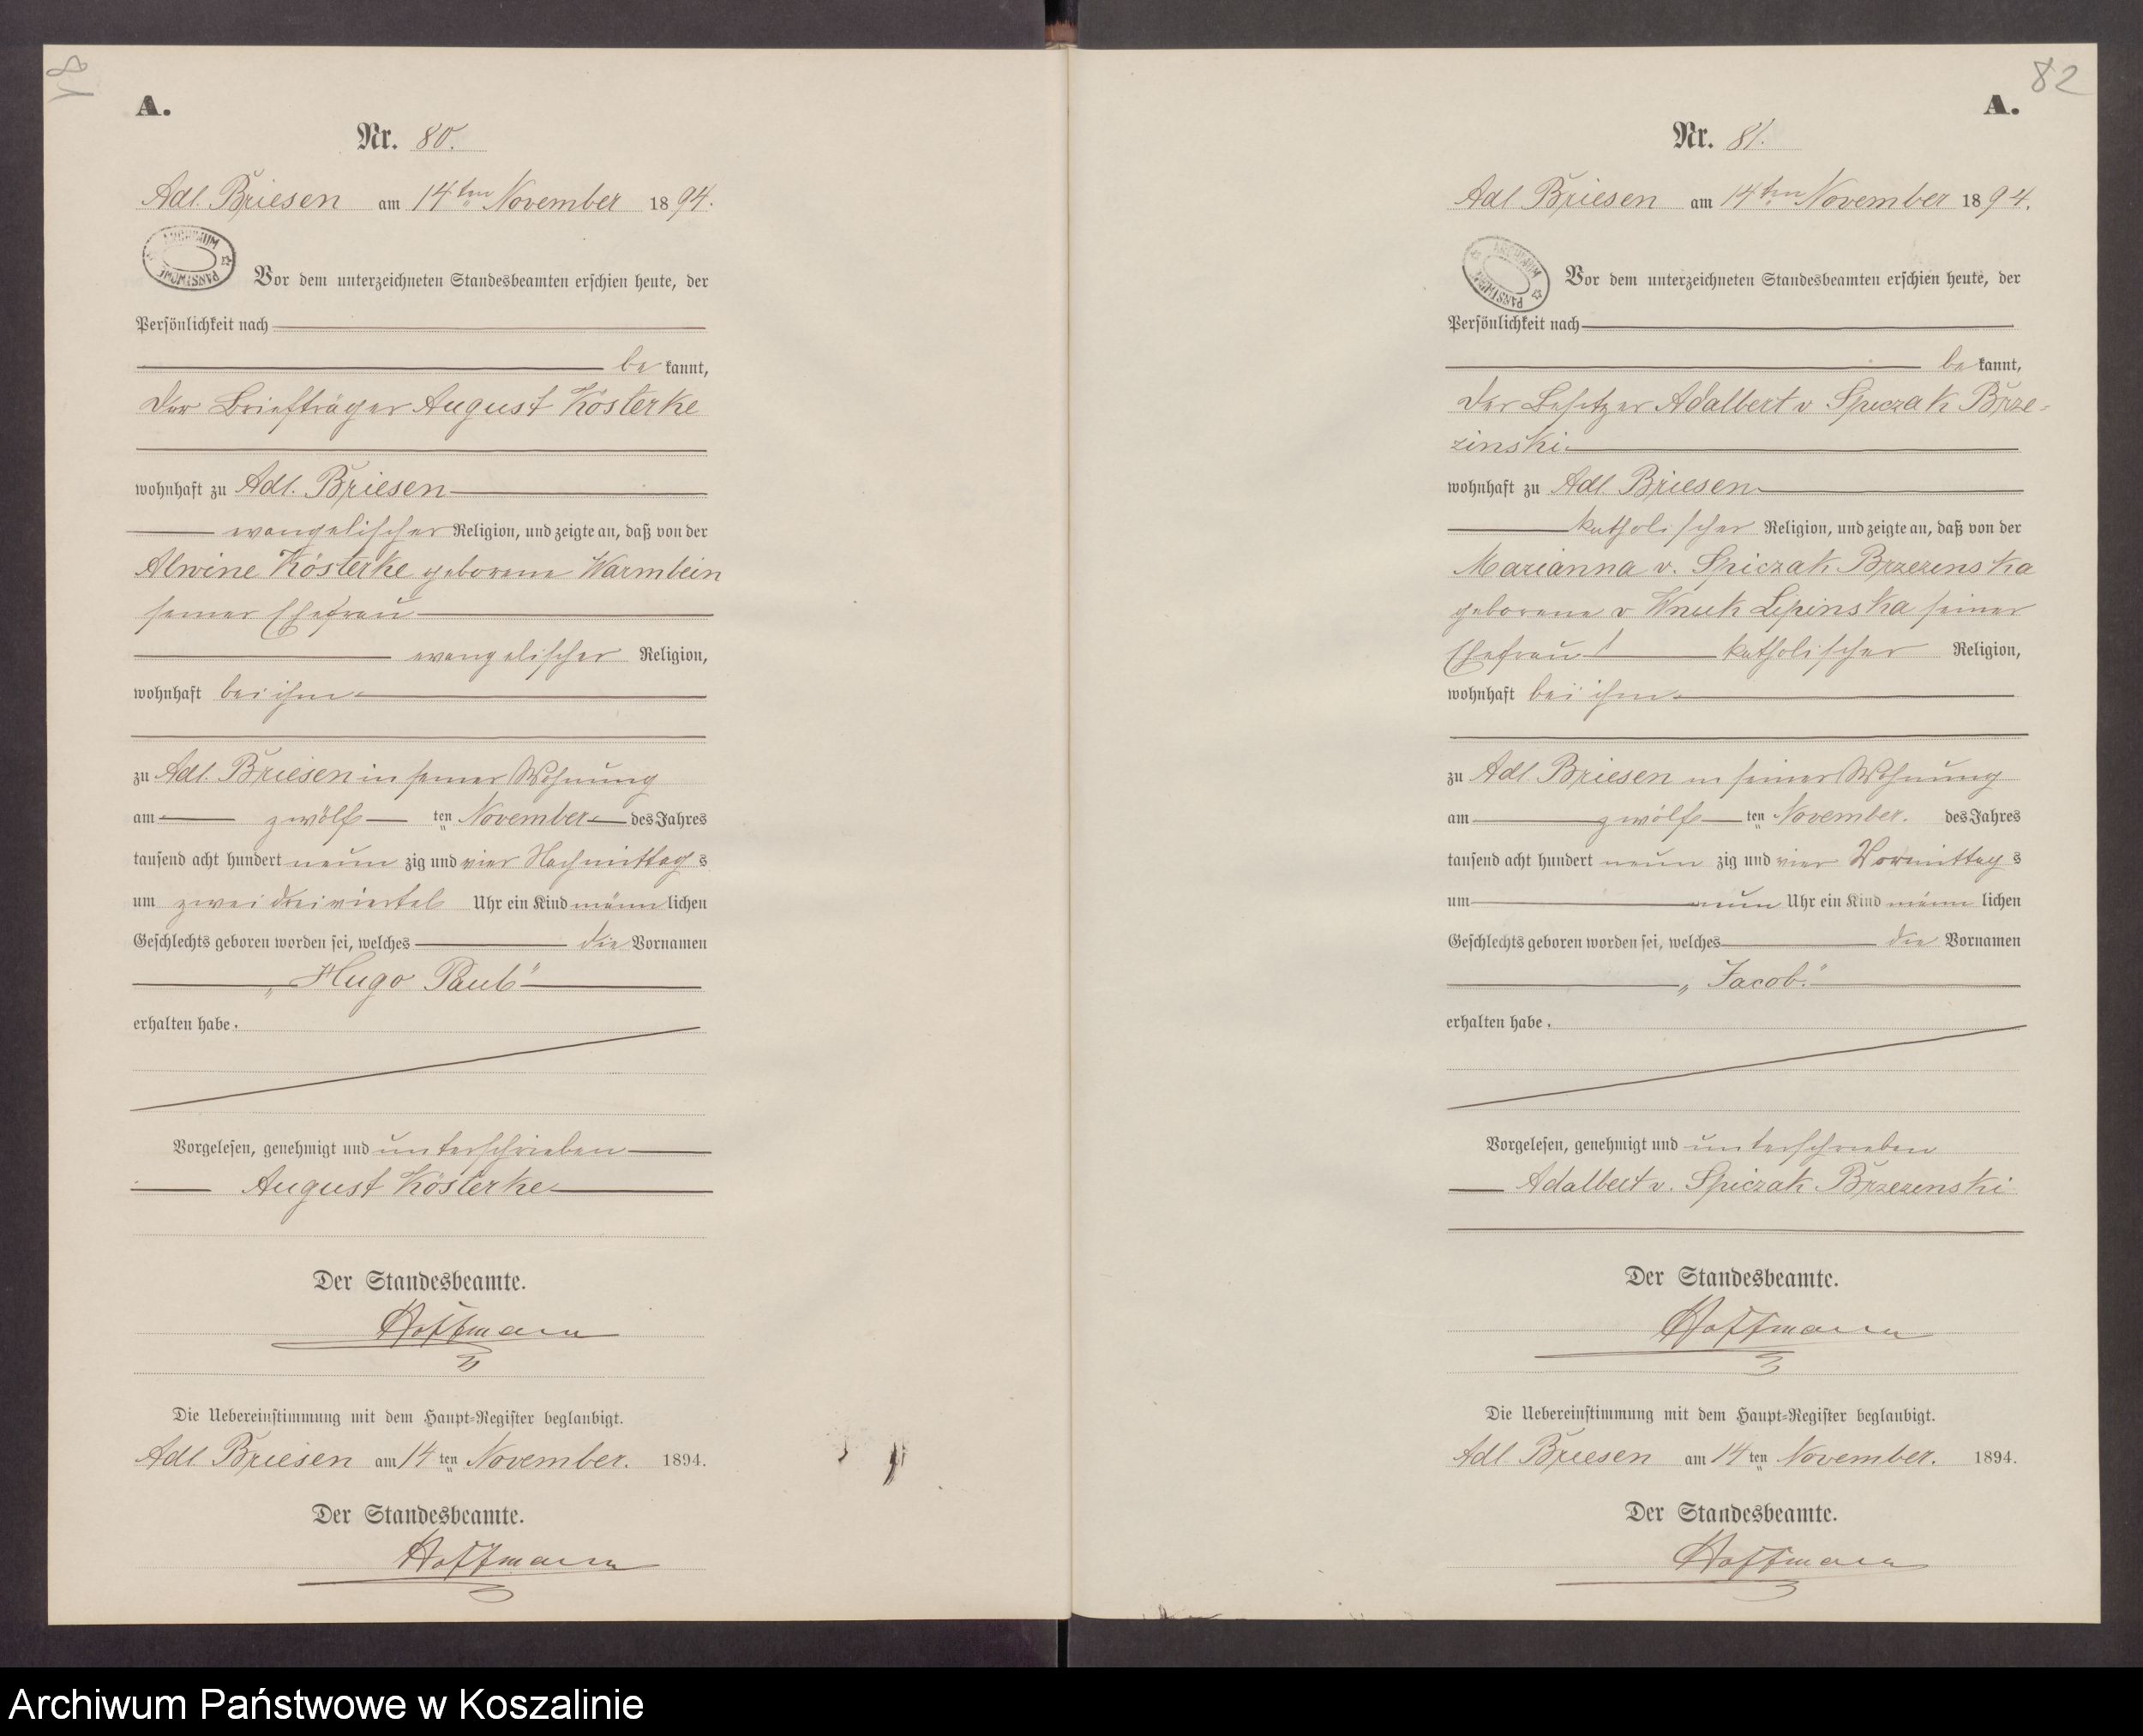 A.
Nr. 80.
Adl. Briesen am 14ten November 1894.
ARCHIWUM PAŃSTWOWE
Vor dem unterzeichneten Standesbeamten erschien heute, der
Persönlichkeit nach
bekannt,
der Briefträger August Kösterke
wohnhaft zu Adl. Briesen
evangelischer Religion, und zeigte an, daß von der
Alwine Kösterke geborene Warmbein
seiner Ehefrau
evangelischer Religion,
wohnhaft bei ihm
zu Adl. Briesen in seiner Wohnung
am zwölf ten November des Jahres
tausend acht hundert neun zig und vier Nachmittags
um zwei dreiviertel Uhr ein Kind männlichen
Geschlechts geboren worden sei, welches die Vornamen
„Hugo Paul“
erhalten habe.
Vorgelesen, genehmigt und unterschrieben
August Kösterke
Der Standesbeamte.
Hoffmann
Die Uebereinstimmung mit dem Haupt-Register beglaubigt.
Adl. Briesen am 14ten November. 1894.
Der Standesbeamte.
Hoffmann
82
A.
Nr. 81.
Adl. Briesen am 14ten November 1894.
ARCHIWUM PAŃSTWOWE
Vor dem unterzeichneten Standesbeamten erschien heute, der
Persönlichkeit nach
bekannt,
der Besitzer Adalbert v. Spiczak Brze-
zinski
wohnhaft zu Adl. Briesen
katholischer Religion, und zeigte an, daß von der
Marianna v. Spiczak Brzezinska
geborene v Wnuk Lipinska seiner
Ehefrau katholischer Religion,
wohnhaft bei ihm
zu Adl. Briesen in seiner Wohnung
am zwölf ten November. des Jahres
tausend acht hundert neun zig und vier Vormittags
um neun Uhr ein Kind männlichen
Geschlechts geboren worden sei, welches die Vornamen
„Jacob.“
erhalten habe.
Vorgelesen, genehmigt und unterschrieben
Adalbert v. Spiczak Brzezinski
Der Standesbeamte.
Hoffmann
Die Uebereinstimmung mit dem Haupt-Register beglaubigt.
Adl. Briesen am 14ten November. 1894.
Der Standesbeamte.
Hoffmann
Archiwum Państwowe w Koszalinie